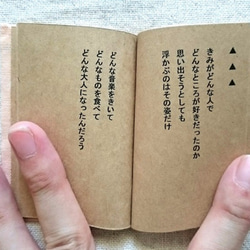 ▲▲▲
きみがどんな人で
どんなところが好きだったのか
思い出そうとしても
浮かぶのはその姿だけ
どんな音楽をきいて
どんなものを食べて
どんな大人になったんだろう